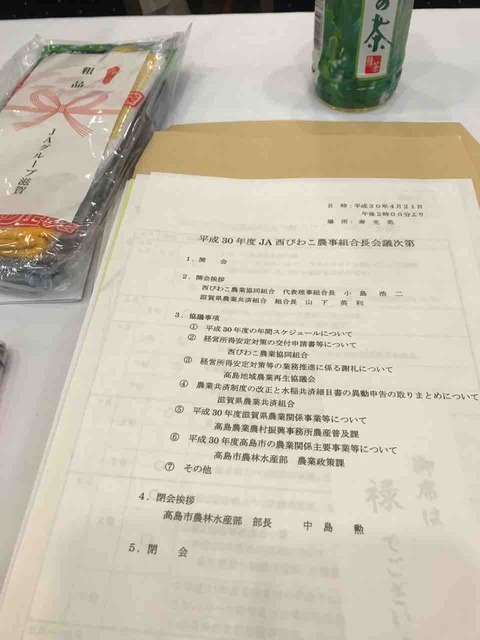 の茶
粗品
JAグループ滋賀
日 時：平成30年4月21日
午後2時00分より
場 所：寿光苑
平成30年度 JA西びわこ農事組合長会議次第
1．開 会
2．開会挨拶
西びわこ農業協同組合 代表理事組合長 小 島 浩 二
滋賀県農業共済組合 組合長 山 下 英 利
3．協議事項
① 平成30年度の年間スケジュールについて
② 経営所得安定対策の交付申請書等について
西びわこ農業協同組合
③ 経営所得安定対策等の業務推進に係る謝礼について
高島地域農業再生協議会
④ 農業共済制度の改正と水稲共済細目書の異動申告の取りまとめについて
滋賀県農業共済組合
⑤ 平成30年度滋賀県農業関係事業等について
高島農業農村振興事務所農産普及課
⑥ 平成30年度高島市の農業関係主要事業等について
高島市農林水産部 農業政策課
⑦ その他
4．閉会挨拶
高島市農林水産部 部長 中 島 勲
5．閉 会
御席は
禄
でござい